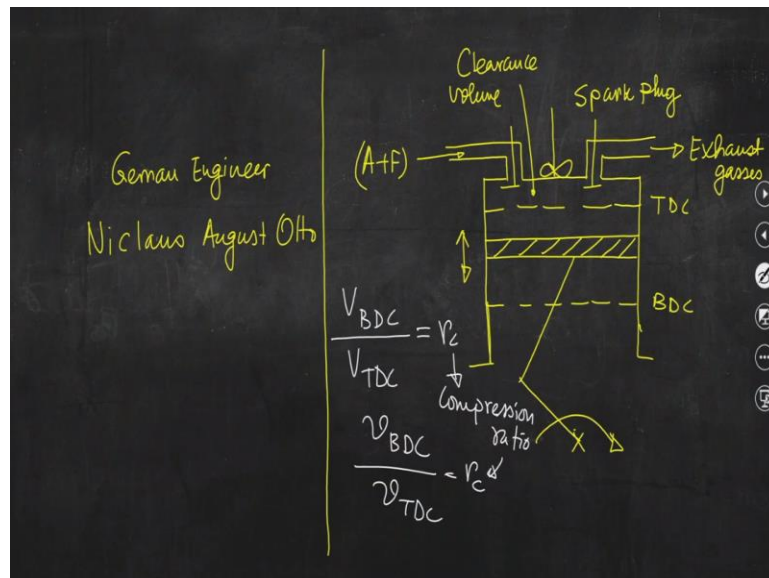 German Engineer
Niclaus August Otto
Clearance
volume
spark plug
(A+F)
Exhaust
gasses
TDC
BDC
V_BDC / V_TDC = r_c
Compression
ratio
v_BDC / v_TDC = r_c